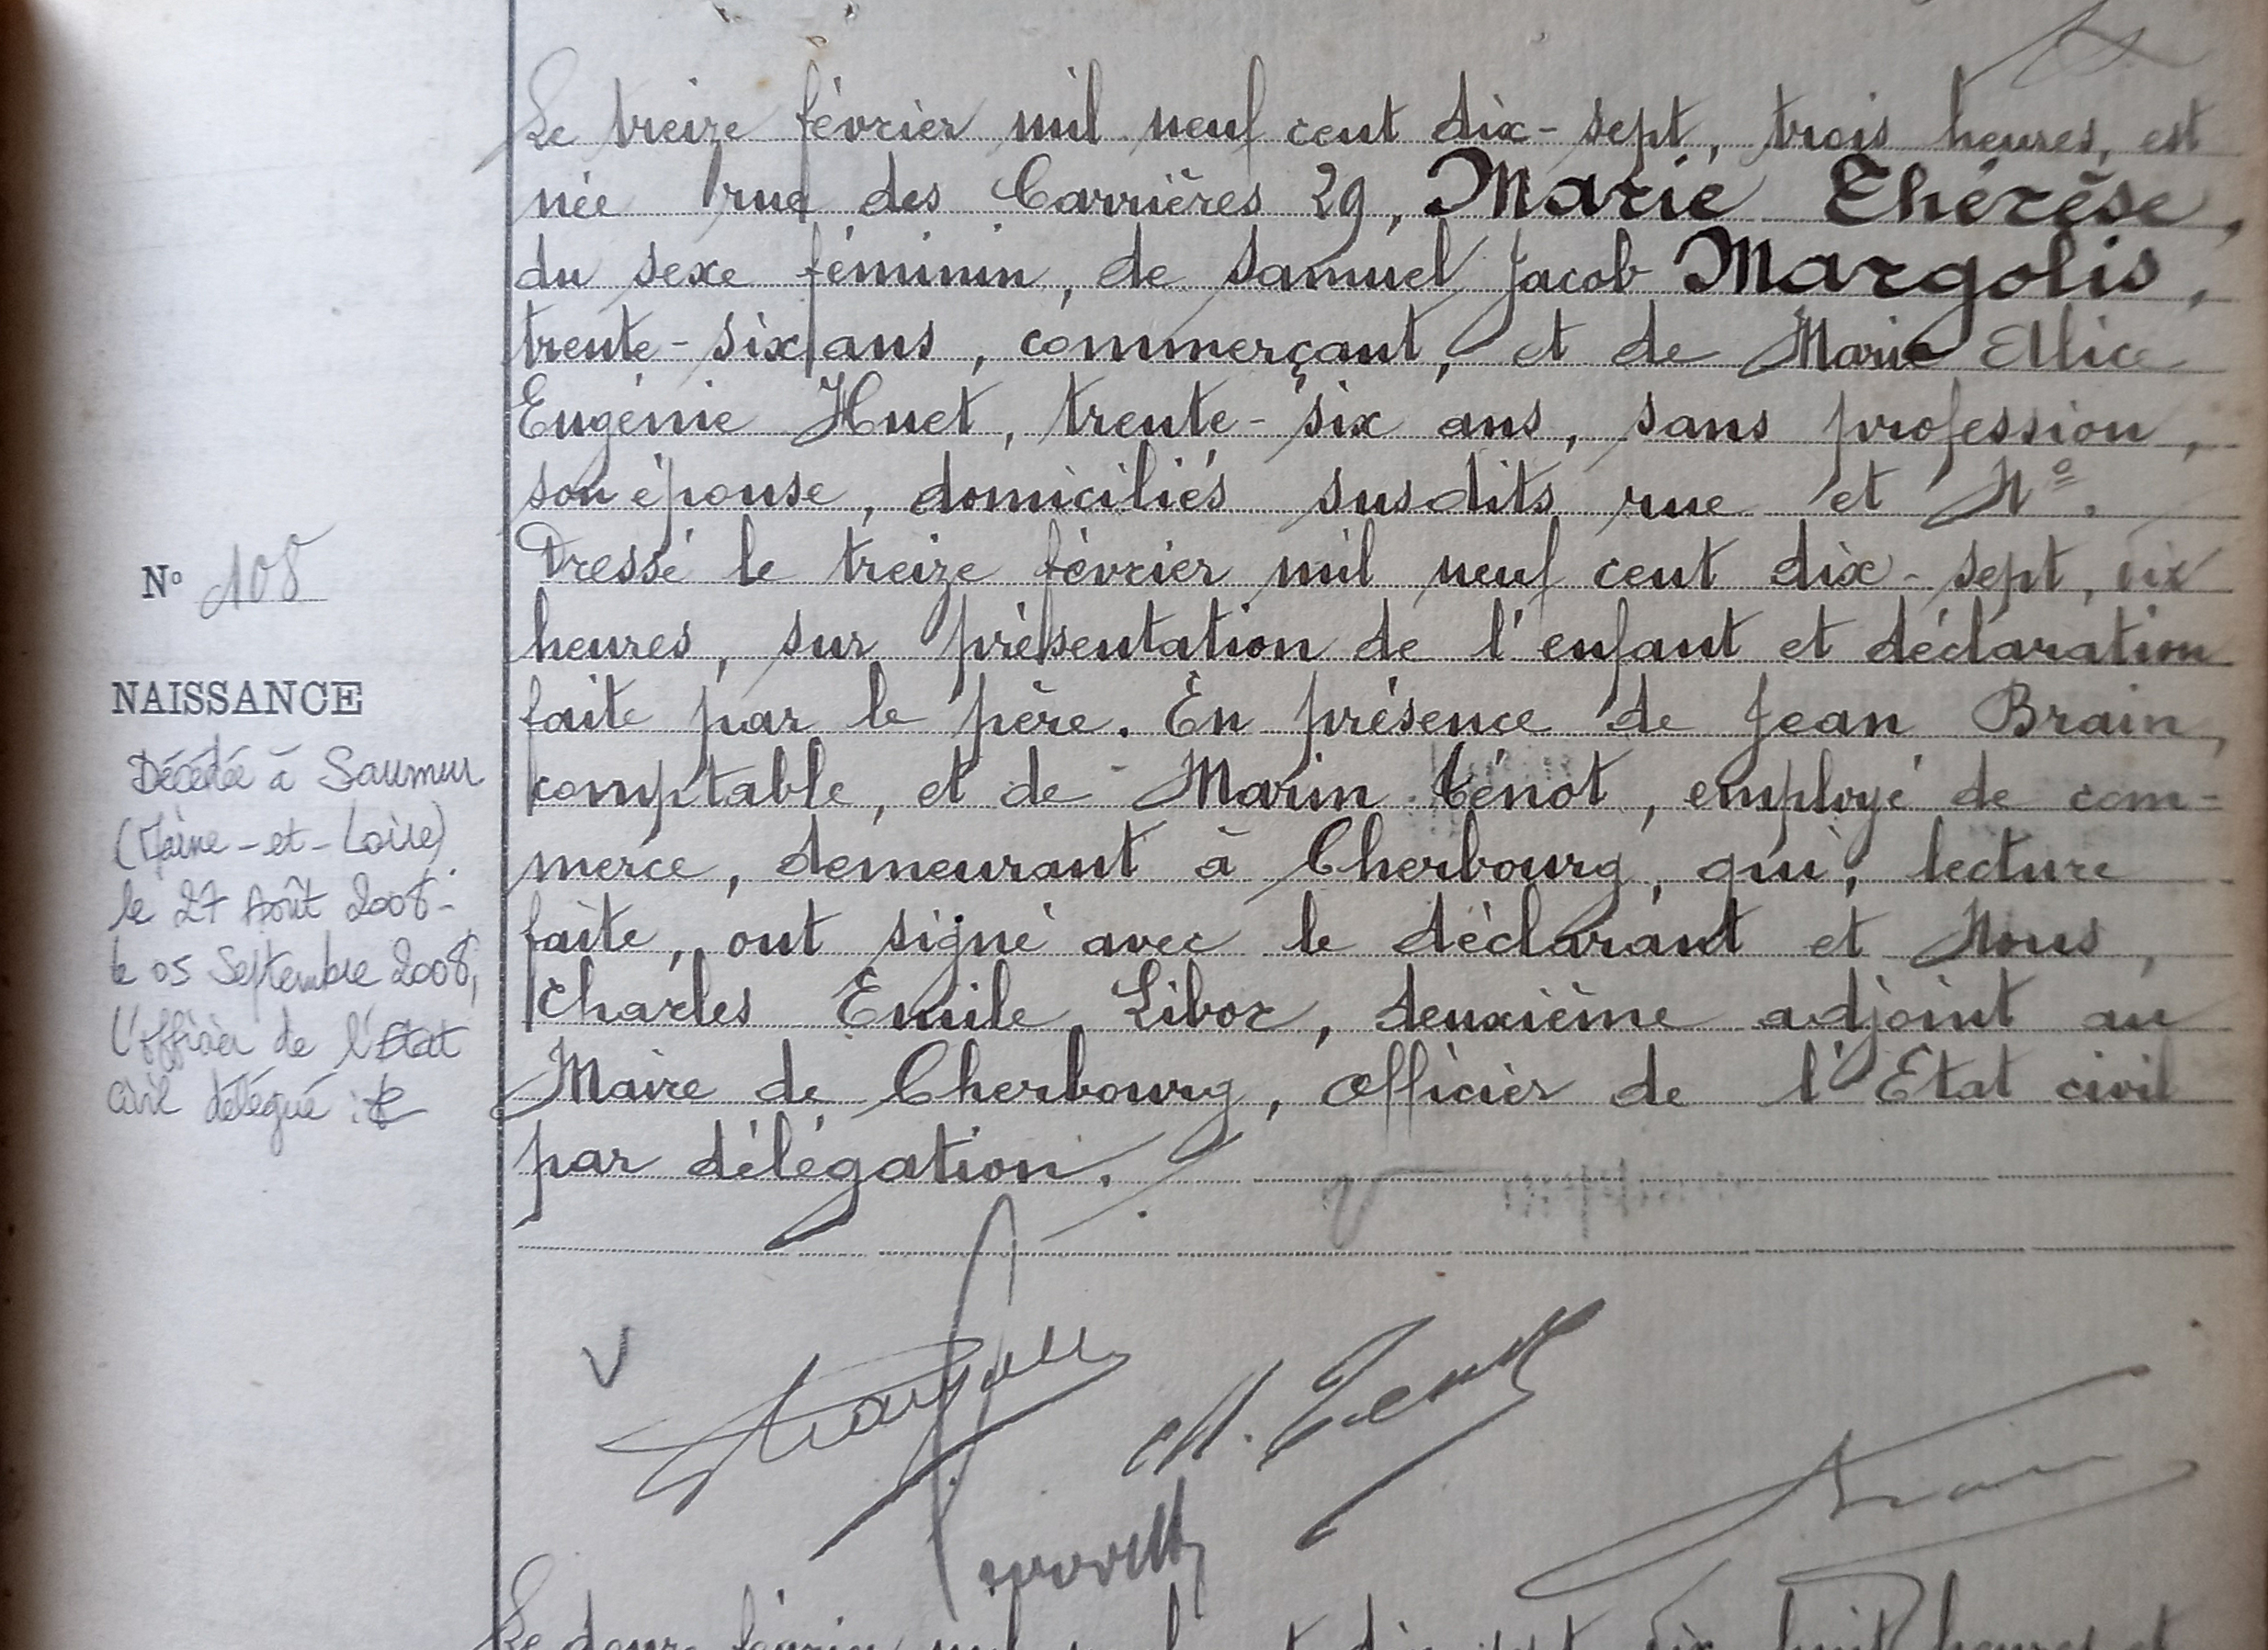 Le treize février mil neuf cent dix-sept, trois heures, est
née rue des Carrières 29, Marie Thérèse,
du sexe féminin, de Samuel Jacob Margolis,
trente-six ans, commerçant, et de Marie Alice
Eugénie Huet, trente-six ans, sans profession,
son épouse, domiciliés susdits rue et Nº.
Dressé le treize février mil neuf cent dix-sept,
heures, sur présentation de l'enfant et déclaration
faite par le père. En présence de Jean Brain,
comptable, et de Marin Ténot, employé de com-
merce, demeurant à Cherbourg, qui, lecture
faite, ont signé avec le déclarant et Nous,
Charles Emile Libor, deuxième adjoint au
Maire de Cherbourg, Officier de l'Etat civil
par délégation.
Nº 108
NAISSANCE
Décédée à Saumur
(Maine-et-Loire)
le 27 Août 2008.
le 05 Septembre 2008,
l'officier de l'Etat
civil délégué :
M. Tenot